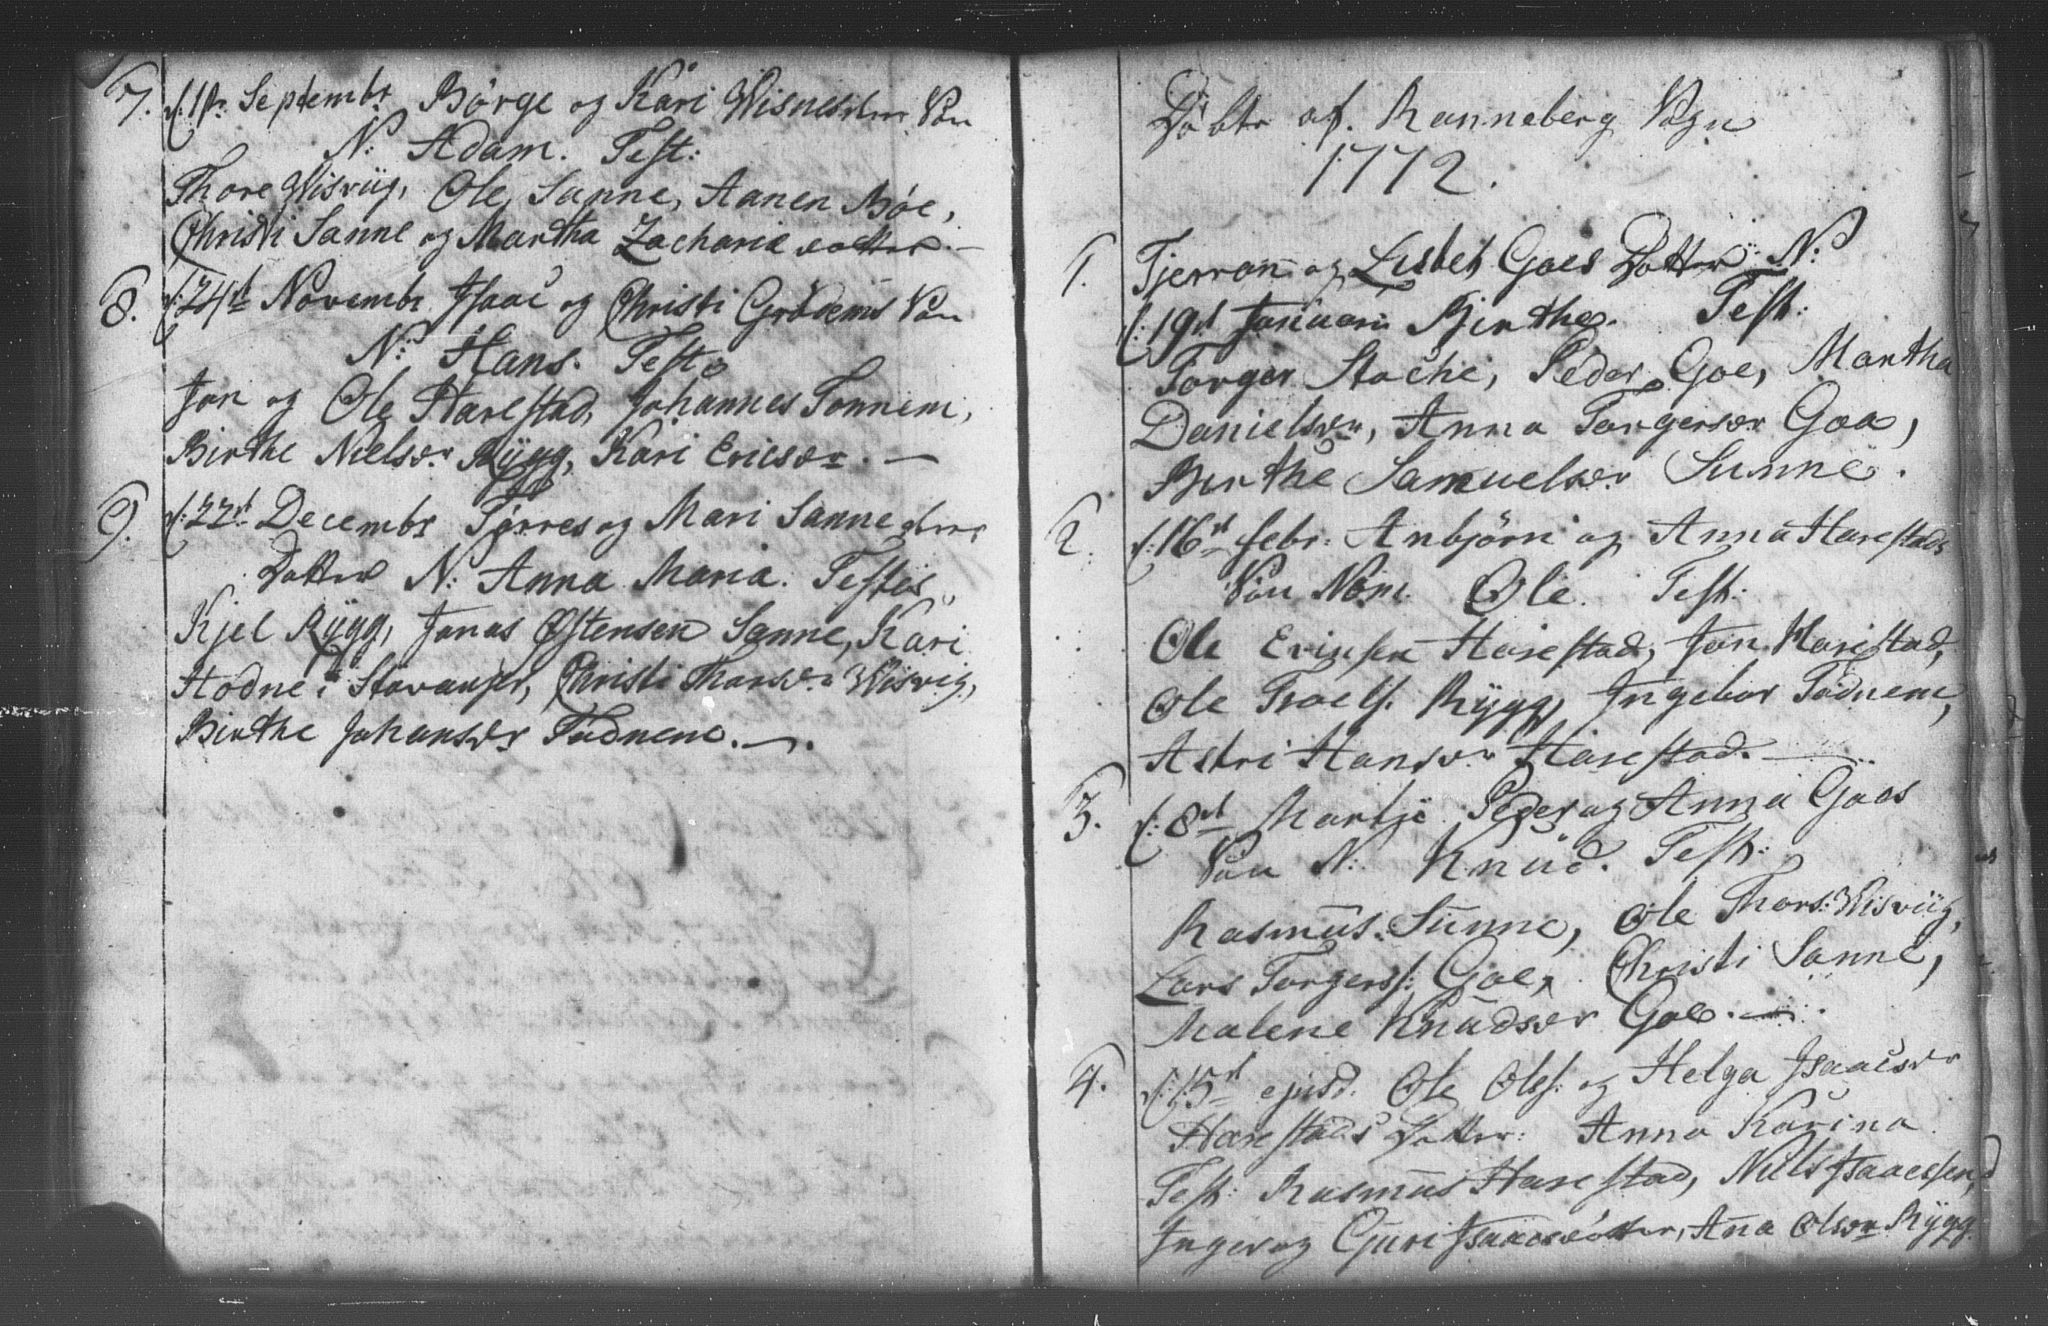 7. d: 1st Septembr Børge og Kari Wisnes deres Søn
N: Adam. Test:
Thore Wisviig, Ole Sanne, Aanen Bøe,
Christi Sanne og Martha Zachariæ datter. —
8. d: 24st Novembr Isaac og Christi Grødems Søn
N: Hans. Test:
Jon og Ole Harestad, Johannes Tonnem,
Birthe Nielsdr Rÿgg, Kari Ericsdr. —
9. d: 22st Decembr Tørres og Mari Sanne deres
Datter N: Anna Maria. Testes
Kjel Rÿgg, Jonas Østensen Sanne, Kari
Hodne i Stavanger, Christi Thorsdr Wisvig,
Birthe Johansdr Todnem. —.
Døbte af Ranneberg Sogn
1772.
1. Tjerran og Lisbet Goes Datter N:
d: 19st Januari Birthe. Test:
Torger Stoche, Peder Goe, Martha
Danielsdr, Anna Torgersdr Goa,
Birthe Samuelsdr Sunne.
2. d: 16st febr: Anbjørn og Anna Harestads
Søn Nom. Ole. Test:
Ole Erichsen Harestad, Jon Harestad,
Ole Troels. Rÿgg, Ingebor Todnem,
Astri Hansdr Harestad. —
3. d: 8st Martji Peder og Anna Goes
Søn N: Knud. Test:
Rasmus Sunne, Ole Thors: Wisviig,
Lars Torgers: Goe, Christi Sanne,
Malene Knudsdr Goe. —.
4. d: 15st ejusd. Ole Ols: og Helga Isaacsdr
Harestads Datter: Anna Karina
Test: Rasmus Harestad, Niels Isaacssen,
Inger og Guri Isaacsdøtter, Ana Olsdr Rÿgg.